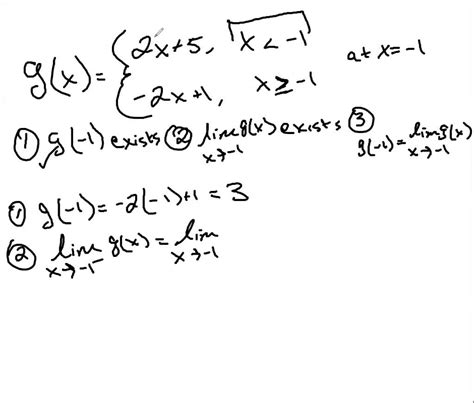 g(x) = { 2x+5, x < -1
-2x+1, x ≥ -1 at x=-1
① g(-1) exists ② lim g(x) exists ③
x→-1 g(-1) = lim g(x)
x→-1
① g(-1) = -2(-1)+1 = 3
② lim g(x) = lim
x→-1⁻ x→-1